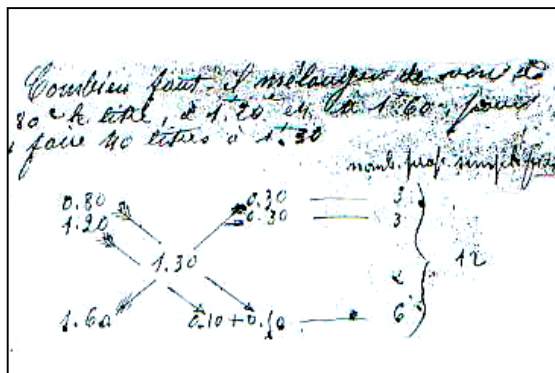 Combien faut-il mélanger de vin à
80c le litre, à 1f20 et à 1f60, pour
faire 40 litres à 1f30
nomb. prop. simplifiés
0.80 0.30 3
1.20 0.30 3
1.30 12
1.60 0.10 + 0.10 6